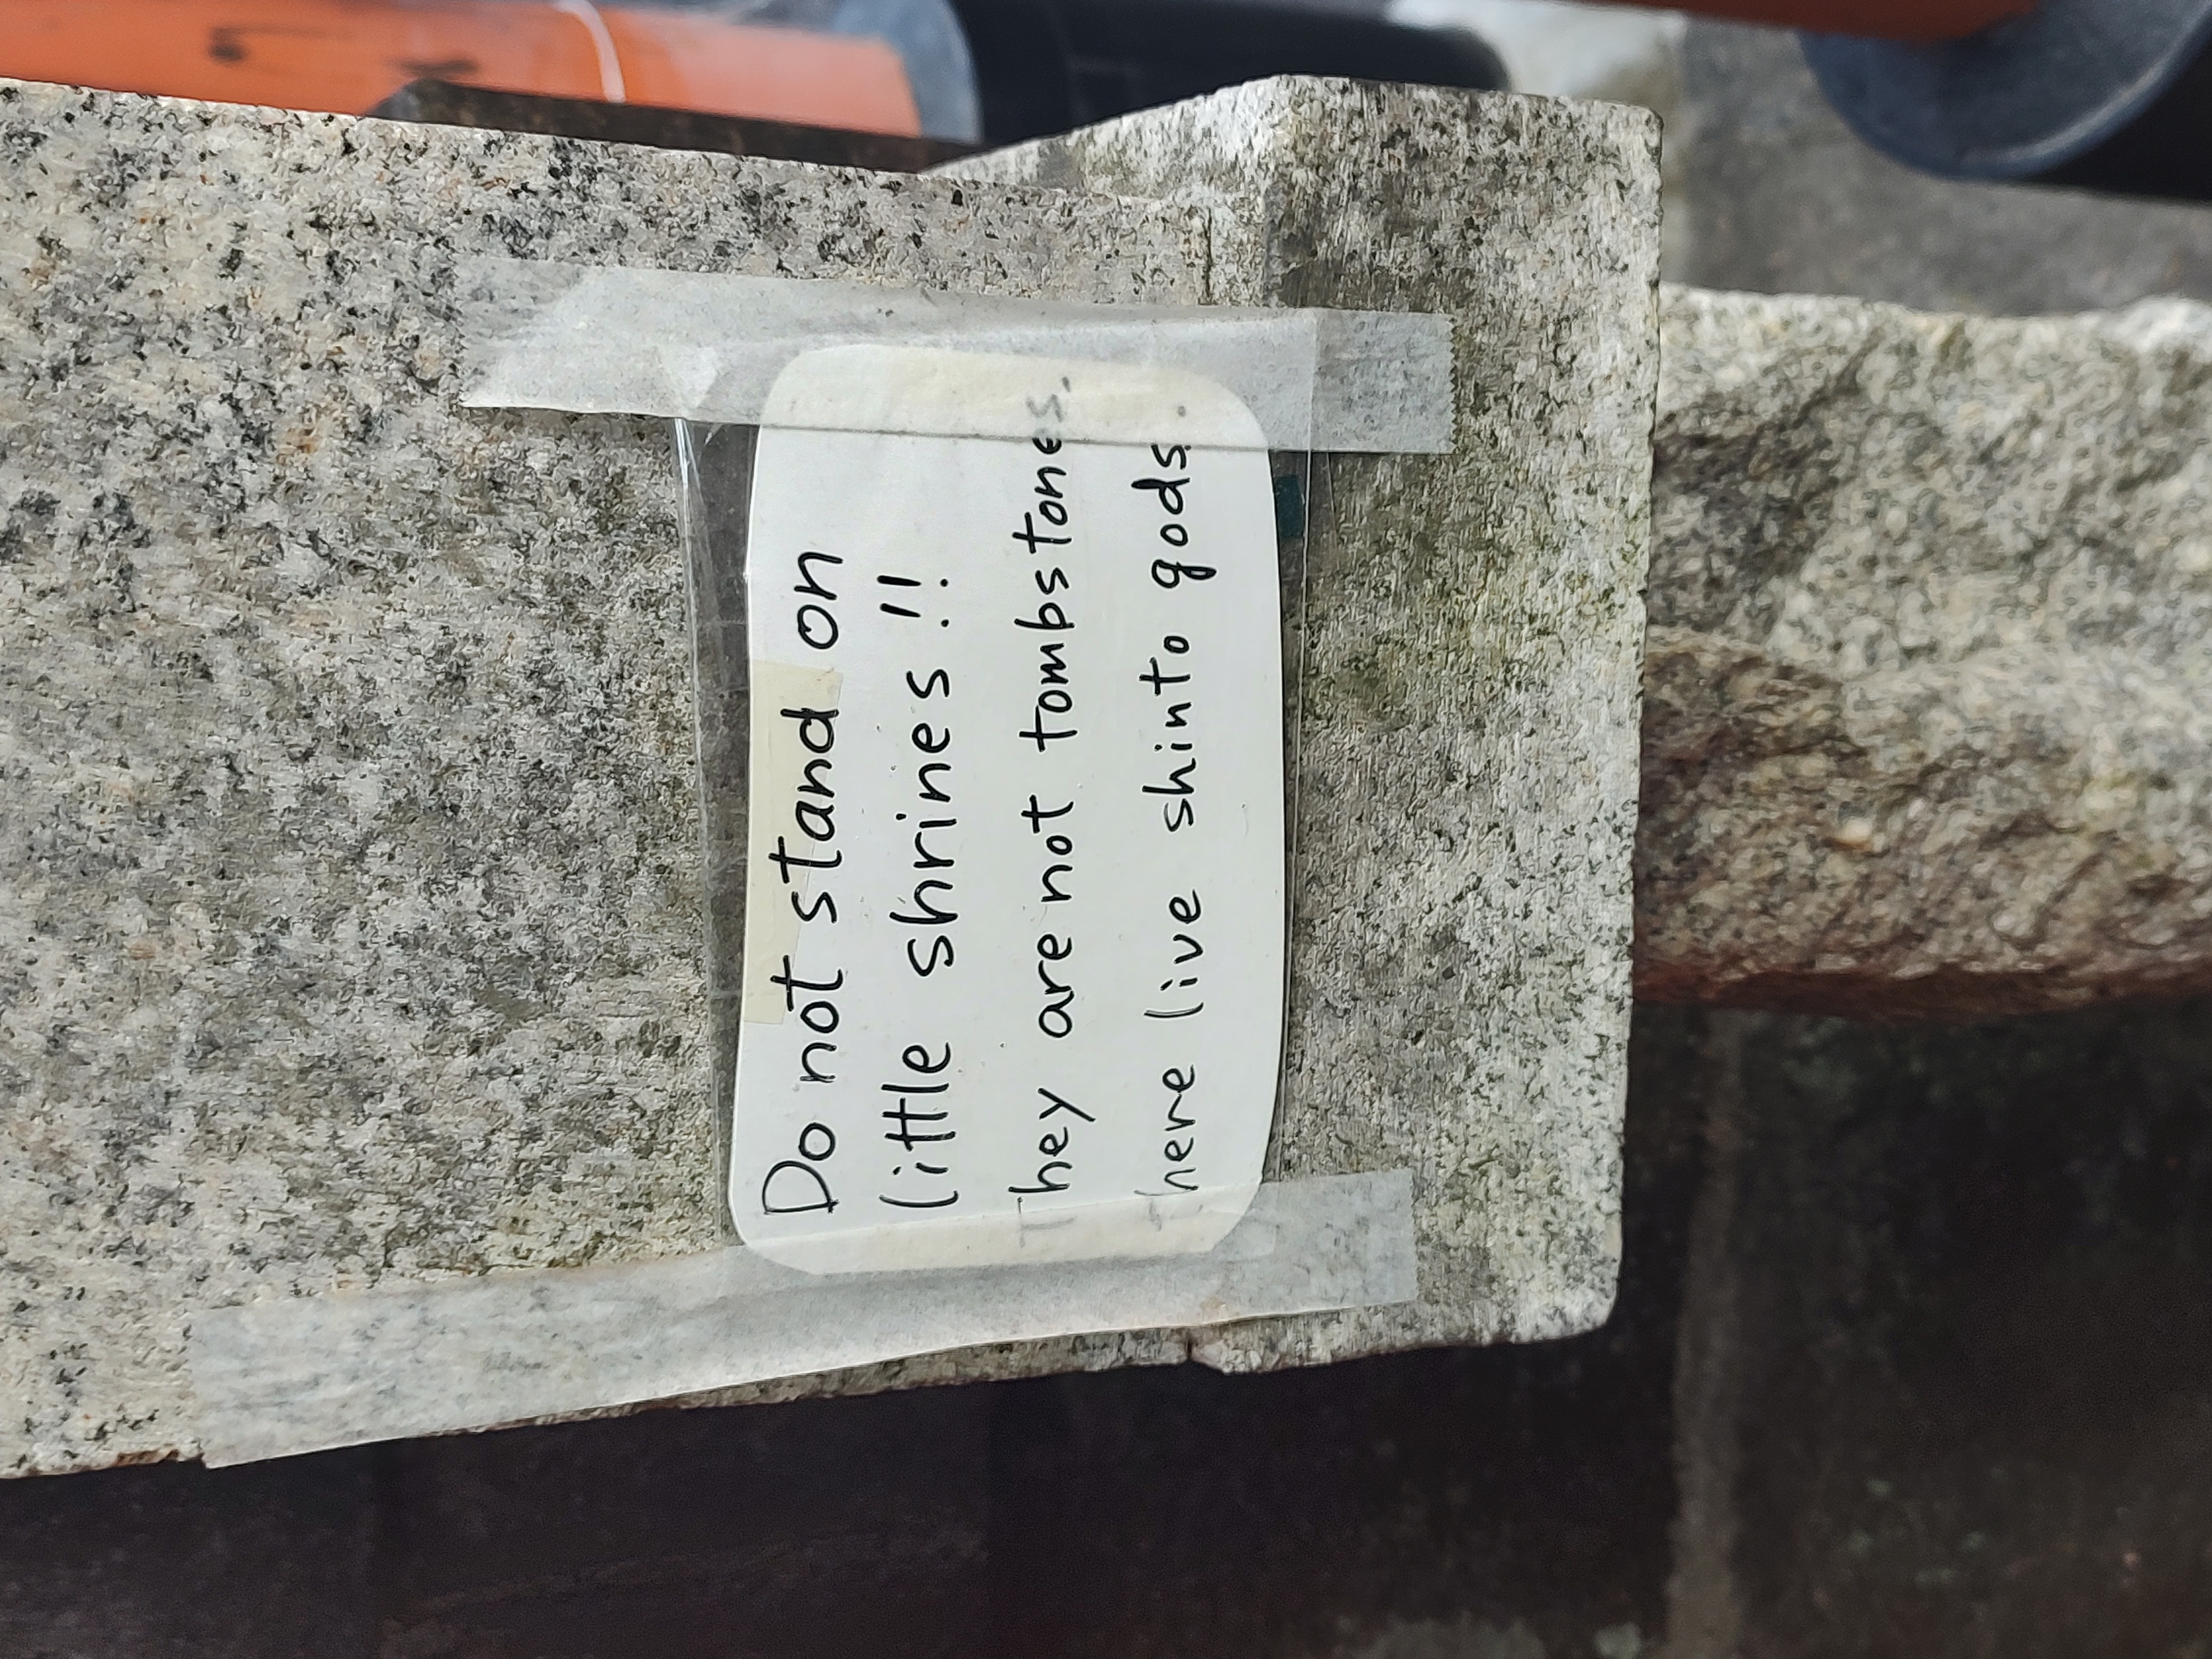 Do not stand on
little shrines !!
They are not tombstones.
there live shinto gods.